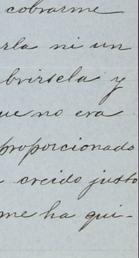 cobrarme
rla ni un
brirsela y
ue no era
proporcionado
creido justo
me ha qui-